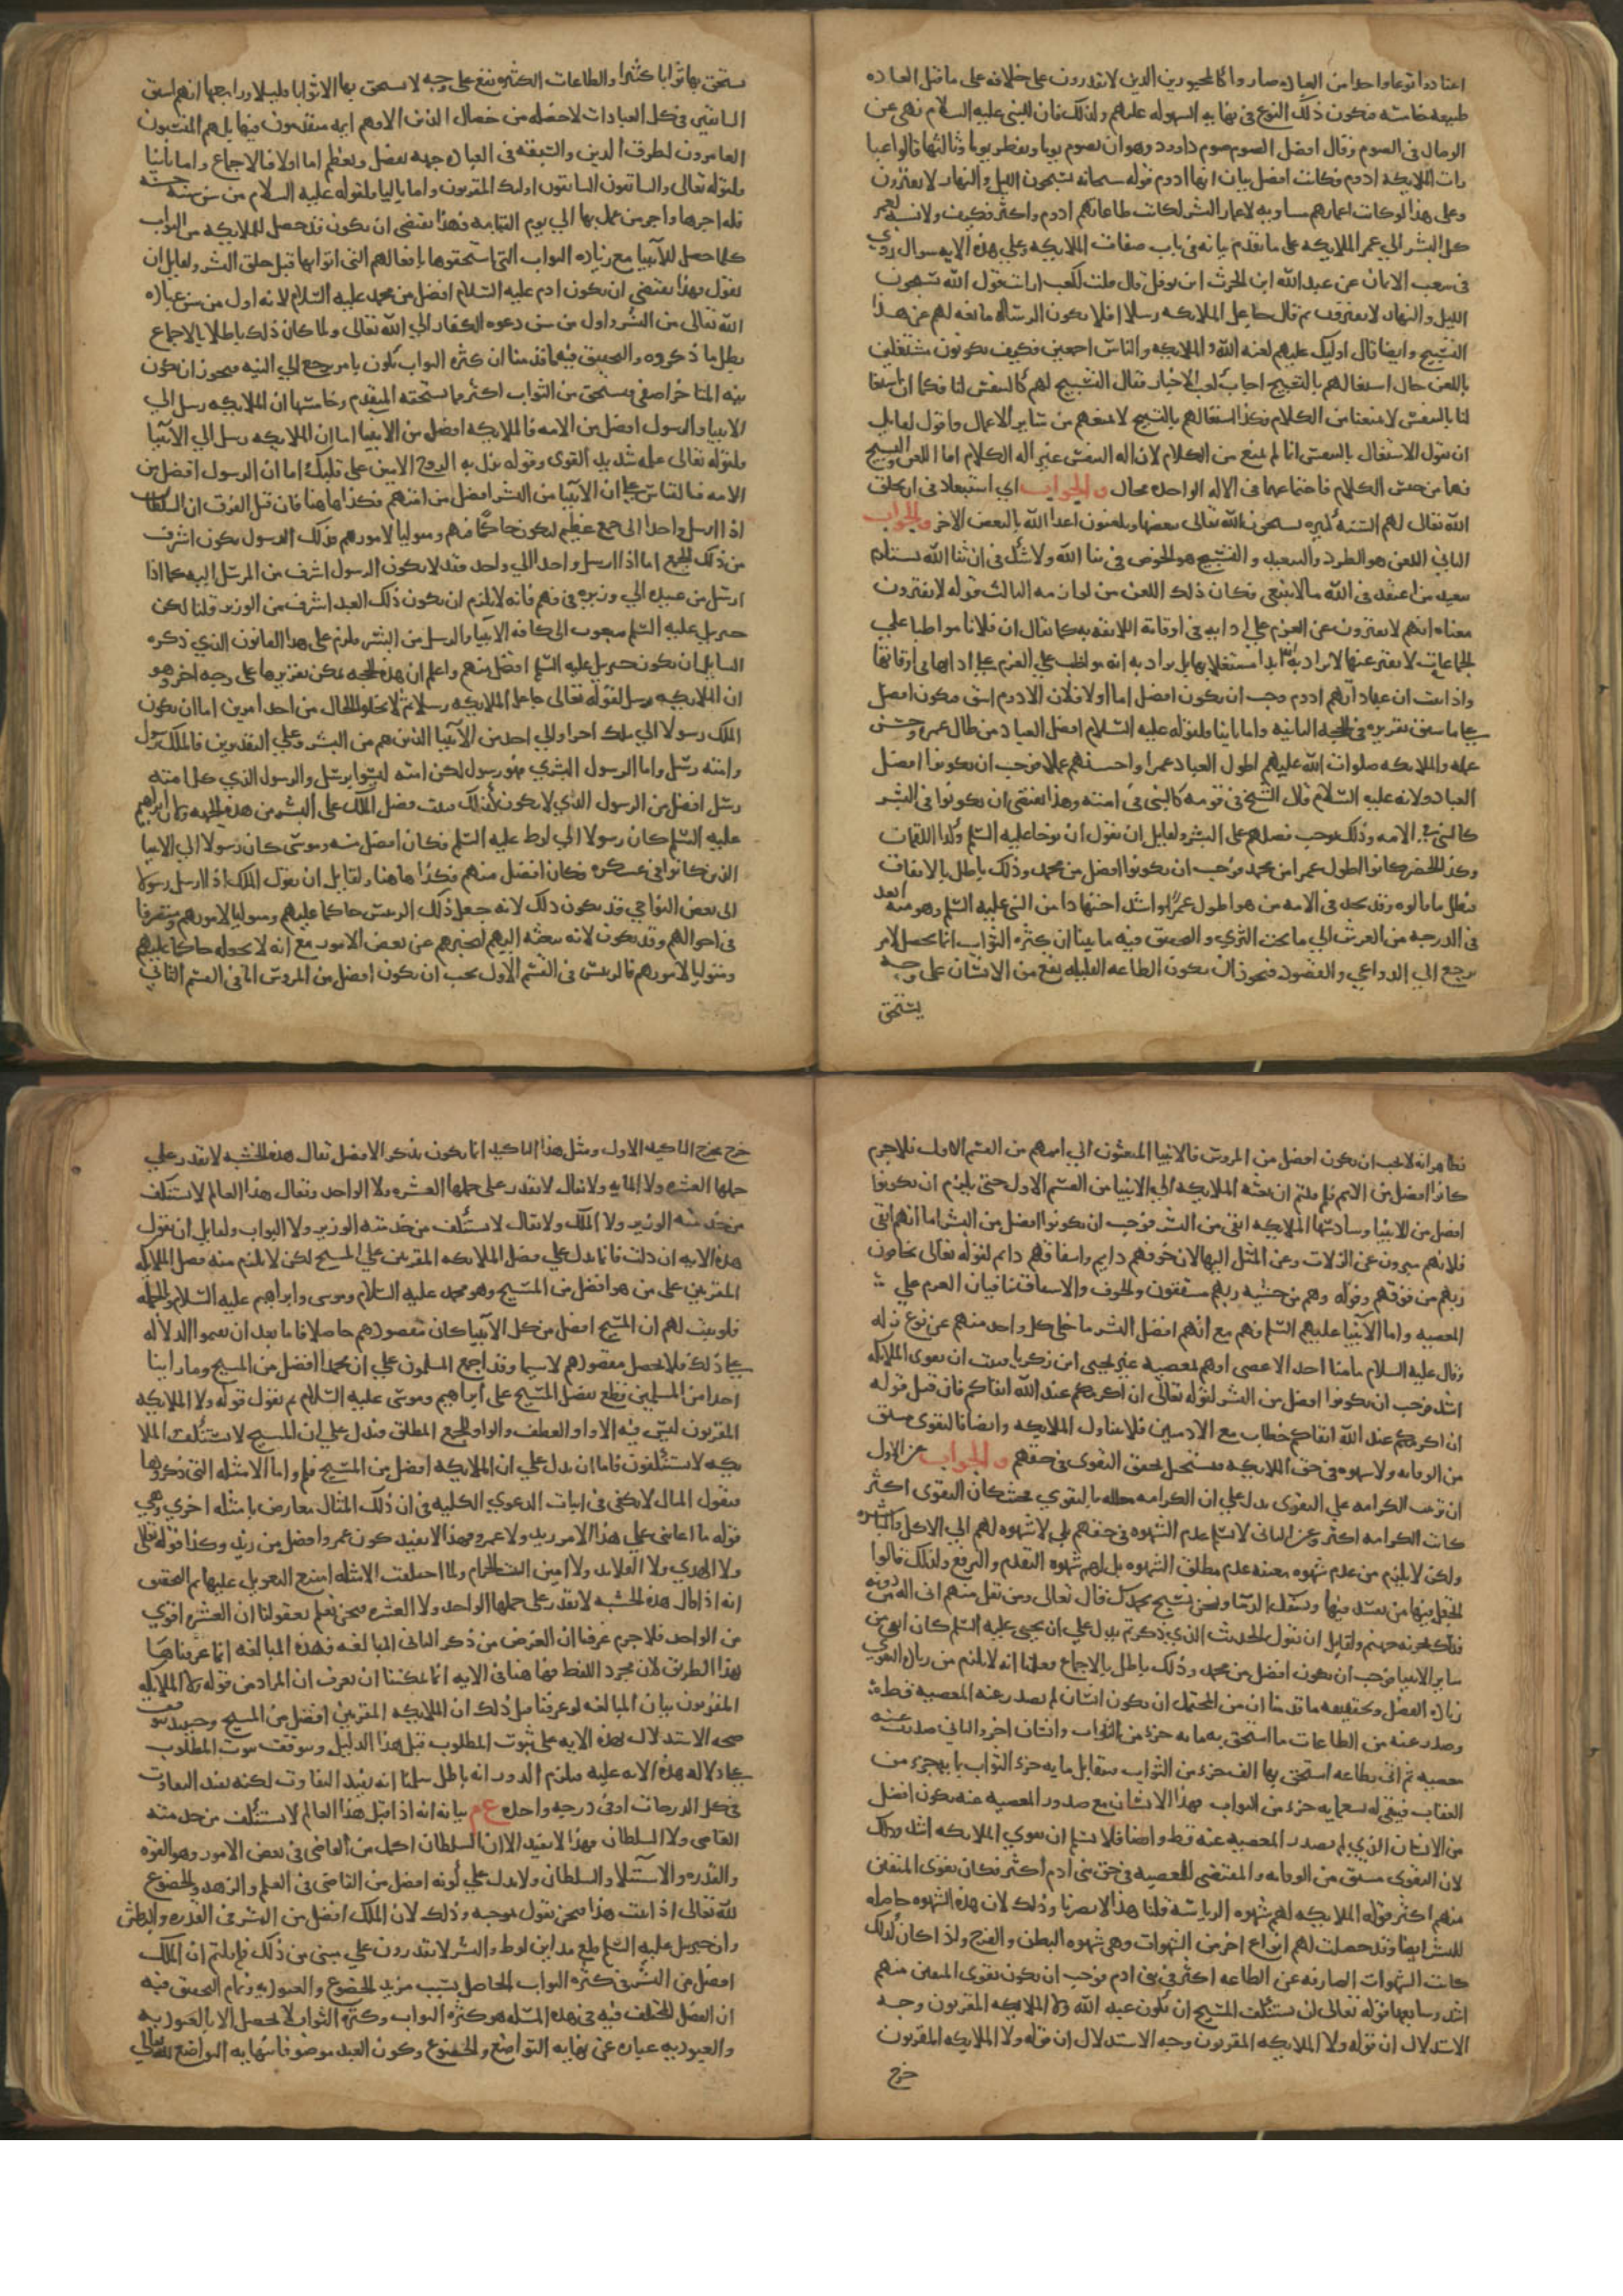 اعتادوا نوعا واحدا من العباده صاروا كالمجبورين الذين لا يقدرون على خلافه على ما قيل العاده
طبيعه خامسه فيكون ذلك النوع في نهايه السهوله عليهم ولذلك فان النبي عليه السلام نهى عن
الوصال في الصوم وقال افضل الصوم صوم داوود وهو ان يصوم يوما ويفطر يوما وثالثها قالوا عبا
دات الملايكه ادوم فكانت افضل بيان انها ادوم قوله سبحانه يسبحون الليل والنهار لا يفترون
وعلى هذا لو كانت اعمارهم مساويه لاعمار البشر لكانت طاعاتهم ادوم واكثر فكيف ولا نسبه لعمر
كل البشر الي عمر الملايكه على ما تقدم بيانه في باب صفات الملايكه وعلي هذه الايه سوال روي
في شعب الايمان عن عبد الله ابن الحرث ابن نوفل قال قلت لكعب ارايت قول الله يسبحون
الليل والنهار لا يفترون ثم قال جاعل الملايكه رسلا افلا يكون الرساله مانعه لهم عن هذا
التسبيح وايضا قال اوليك عليهم لعنه الله والملايكه والناس اجمعين فكيف يكونون مشتغلين
باللعن حال اشتغالهم بالتسبيح اجاب كعب الاحبار فقال التسبيح لهم كالتنفس لنا فكما ان اشتغا
لنا بالتنفس لا يمنعنا من الكلام فكذا اشتغالهم بالتسبيح لا يمنعهم من ساير الاعمال واقول لقايل
ان يقول الاشتغال بالتنفس انما لم يمنع من الكلام لان اله التنفس غير اله الكلام اما اللعن والتسبيح
فهما من جنس الكلام فاجتماعهما في الاله الواحده محال والجواب اي استبعاد في ان يخلق
الله تعالى لهم السنه كثيره يسبحون الله تعالى ببعضها ويلعنون اعدا الله بالبعض الاخر والجواب
الثاني اللعن هو الطرد والتبعيد والتسبيح هو الخوض في ثنا الله ولا شك في ان ثنا الله يستلزم
تبعيد من اعتقد في الله ما لا ينبغي فكان ذلك اللعن من لوازمه الثالث قوله لا يفترون
معناه انهم لا يفترون عن العزم علي ادايه في اوقاته اللايقه به كما يقال ان فلانا مواظبا علي
الجماعات لا يفتر عنها لا يراد به انه ابدا مشتغل بها بل يراد به انه مواظب علي العزم علي ادايها في اوقاتها
واذا ثبت ان عباداتهم ادوم وجب ان يكون افضل اما اولا فلان الادوم اشق فيكون افضل
علي ما سبق تقريره في الحجه الثانيه واما ثانيا فلقوله عليه السلام افضل العباد من طال عمره وحسن
عمله والملايكه صلوات الله عليهم اطول العباد عمرا واحسنهم عملا فوجب ان يكونوا افضل
العباد ولانه عليه السلام قال الشيخ في قومه كالنبي في امته وهذا يقتضي ان يكونوا في البشر
كالنبي في الامه وذلك يوجب فضلهم على البشر ولقايل ان يقول ان نوحا عليه السلم وكذا اللقمان
وكذا الخضر كانوا اطول عمرا من محمد فوجب ان يكونوا افضل من محمد وذلك باطل بالاتفاق
فبطل ما قالوه وقد نجد في الامه من هو اطول عمرا واشد اجتهادا من النبي عليه السلم وهو منه ابعد
في الدرجه من العرش الي ما تحت الثري والتحقيق فيه ما بينا ان كثره الثواب انما يحصل لامر
يرجع الي الدواعي والقصود فيجوز ان يكون الطاعه القليله يقع من الانسان على وجه
يستحق
يستحق بها ثوابا كثيرا والطاعات الكثيره تقع على وجه لا يستحق بها الا ثوابا قليلا ورابعها انهم اسبق
السابقين في كل العبادات لا خصله من خصال الدين الا وهم ايمه متقدمون فيها بل هم المنشيون
العامرون لطرق الدين والسبق في العباده جهه تفضيل وتعظيم اما اولا فبالاجماع واما ثانيا
فلقوله تعالى والسابقون السابقون اوليك المقربون واما ثالثا فلقوله عليه السلام من سن سنه حسنه
فله اجرها واجر من عمل بها الي يوم القيامه وهذا يقتضي ان يكون قد حصل للملايكه من الثواب
كلما حصل للانبيا مع زياده الثواب التي استحقوها بافعالهم التي اتوا بها قبل خلق البشر ولقايل ان
يقول فهذا يقتضي ان يكون ادم عليه السلام افضل من محمد عليه السلام لانه اول من سن عباده
الله تعالى من البشر واول من سن دعوه الكفار الي الله تعالى ولما كان ذلك باطلا بالاجماع
بطل ما ذكروه والتحقيق فيه ما قدمنا ان كثره الثواب تكون بامر يرجع الي النيه فيجوز ان يكون
نيه المتاخر اصفى فيستحق من الثواب اكثر ما يستحقه المتقدم وخامسها ان الملايكه رسل الي
الانبيا والرسول افضل من الامه فالملايكه افضل من الانبيا اما ان الملايكه رسل الي الانبيا
فلقوله تعالى علمه شديد القوى وقوله نزل به الروح الامين على قلبك واما ان الرسول افضل من
الامه فبالقياس علي ان الانبيا من البشر افضل من اممهم فكذا هاهنا فان قيل الفرق ان السلطان
اذا ارسل واحدا الى جمع عظيم ليكون حاكما فيهم ومتوليا لامورهم فذلك الرسول يكون اشرف
من ذلك الجمع اما اذا ارسل واحدا الي واحد فقد لا يكون الرسول اشرف من المرسل اليه كما اذا
ارسل من عبيده الي وزيره في فهم فانه لا يلزم ان يكون ذلك العبد اشرف من الوزير قلنا لكن
جبريل عليه السلم مبعوث الى كافه الانبيا والرسل من البشر فلزم على هذا القانون الذي ذكره
السايل ان يكون جبريل عليه السلم افضل منهم واعلم ان هذه الحجه يمكن تقريرها على وجه اخر وهو
ان الملايكه رسل لقوله تعالى جاعل الملايكه رسلا ثم لا يخلو الحال من احد امرين اما ان يكون
الملك رسولا الي ملك اخر او الي احد من الانبيا الذين هم من البشر وعلي التقديرين فالملك رسول
وامته رسل واما الرسول البشري فهو رسول لكن امته ليسوا برسل والرسول الذي كل امته
رسل افضل من الرسول الذي لا يكون كذلك فثبت فضل الملك على البشر من هذه الجهه ولان ابراهيم
عليه السلم كان رسولا الي لوط عليه السلم فكان افضل منه وموسى كان رسولا الي الانبيا
الذين كانوا في عسكره فكان افضل منهم فكذا هاهنا ولقايل ان يقول الملك اذا ارسل رسولا
الى بعض النواحي قد يكون ذلك لانه جعل ذلك الرسول حاكما عليهم ومتوليا لامورهم ومتصرفا
في احوالهم وقد يكون لانه يبعثه اليهم ليخبرهم عن بعض الامور مع انه لا يجعله حاكما عليهم
ومتوليا لامورهم فالرسول في القسم الاول يجب ان يكون افضل من المرسل اما في القسم الثاني
فظاهر انه لا يجب ان يكون افضل من المرسل فالانبيا المبعثون الي اممهم من القسم الاول فلا جرم
كانوا افضل من الامم فلم قلتم ان بعثه الملايكه الي الانبيا من القسم الاول حتى يلزم ان يكونوا
افضل من الانبيا وسادسها الملايكه اتقى من البشر فوجب ان يكونوا افضل من البشر اما انهم اتقى
فلانهم مبرون عن الزلات وعن الميل اليها لان خوفهم دايم واشفاقهم دايم لقوله تعالى يخافون
ربهم من فوقهم وقوله وهم من خشيه ربهم مشفقون والخوف والاشفاق ينافيان العزم علي
المعصيه واما الانبيا عليهم السلم فهم مع انهم افضل البشر ما خلى كل واحد منهم عن نوع زله
وقال عليه السلام ما منا احد الا عصى او هم بمعصيه غير يحيى ابن زكريا فثبت ان تقوى الملايكه
اشد فوجب ان يكونوا افضل من البشر لقوله تعالى ان اكرمكم عند الله اتقاكم فان قيل قوله
ان اكرمكم عند الله اتقاكم خطاب مع الادميين فلا يتناول الملايكه وايضا فالتقوى مشتق
من الوقايه ولا شهوه في حق الملايكه فيستحيل تحقق التقوى في حقهم والجواب عن الاول
ان ترتيب الكرامه علي التقوى يدل علي ان الكرامه معلله بالتقوي فحيث كان التقوى اكثر
كانت الكرامه اكثر وعن الثاني لا نسلم عدم الشهوه في حقهم بلي لا شهوه لهم الي الاكل والمباشره
ولكن لا يلزم من عدم شهوه معينه عدم مطلق الشهوه بل لهم شهوه التقدم والترفع ولذلك قالوا
اتجعل فيها من يفسد فيها ويسفك الدما ونحن نسبح بحمدك وقال تعالى ومن يقل منهم اني اله من دونه
فذلك نجزيه جهنم ولقايل ان يقول الحديث الذي ذكرتم يدل علي ان يحيى عليه السلم كان اتقى من
ساير الانبيا فوجب ان يكون افضل من محمد وذلك باطل بالاجماع فعلمنا انه لا يلزم من زياده التقوي
زياده الفضل وتحقيقه ما قدمنا ان من المحتمل ان يكون انسان لم يصدر عنه المعصيه قط
وصدر عنه من الطاعات ما استحق به مايه جزء من الثواب وانسان اخر والثاني صدرت عنه
معصيه ثم اتى بطاعه استحق بها الف جزء من الثواب فيقابل مايه جزء الثواب بمايه جزء من
العقاب فيبقى له تسعمايه جزء من الثواب فهذا الانسان مع صدور المعصيه عنه يكون افضل
من الانسان الذي لم يصدر المعصيه عنه قط وايضا فلا نسلم ان تقوي الملايكه اشد وذلك
لان التقوى مشتق من الوقايه والمقتضى للمعصيه في حق بني ادم اكثر فكان تقوى المتقين
منهم اكثر قوله الملايكه لهم شهوه الرياسه قلنا هذا لا يضرنا وذلك لان هذه الشهوه حاصله
للبشر ايضا وقد حصلت لهم انواع اخر من الشهوات وهي شهوه البطن والفرج واذا كان كذلك
كانت الشهوات الصارفه عن الطاعه اكثر في بني ادم فوجب ان يكون تقوى المتقين منهم
اشد وسابعها قوله تعالى لن يستنكف المسيح ان يكون عبد الله ولا الملايكه المقربون وجه
الاستدلال ان قوله ولا الملايكه المقربون وجه الاستدلال ان قوله ولا الملايكه المقربون
خرج
خرج مخرج التاكيد الاول ومثل هذا التاكيد انما يكون بذكر الافضل يقال هذه الخشبه لا يقدر علي
حملها العشره ولا المايه ولا يقال لا يقدر على حملها العشره ولا الواحد ويقال هذا العالم لا يستنكف
من خدمته الوزير ولا الملك ولا يقال لا يستنكف من خدمته الوزير ولا البواب ولقايل ان يقول
هذه الايه ان دلت فانما يدل علي فضل الملايكه المقربين علي المسيح لكن لا يلزم منه فضل الملايكه
المقربين على من هو افضل من المسيح وهو محمد عليه السلام وموسى وابراهيم عليه السلام وبالجمله
فلو ثبت لهم ان المسيح افضل من كل الانبيا كان مقصودهم حاصلا فاما بعد ان يقيموا الدلاله
علي ذلك فلا يحصل مقصودهم لا سيما وقد اجمع المسلمون علي ان محمدا افضل من المسيح وما راينا
احدا من المسلمين قطع بفضل المسيح على ابراهيم وموسى عليه السلام ثم نقول قوله ولا الملايكه
المقربون ليس فيه الا واو العطف والواو للجمع المطلق فيدل علي ان المسيح لا يستنكف والملا
يكه لا يستنكفون فاما ان يدل علي ان الملايكه افضل من المسيح فلم واما الامثله التي ذكروها
فنقول المثال لا يكفي في اثبات الدعوي الكليه في ان ذلك المثال معارض بامثله اخري وهي
قوله ما اعانني علي هذا الامر زيد ولا عمرو فهذا لا يفيد كون عمرو افضل من زيد وكذا قوله تعالى
ولا الهدي ولا القلايد ولا امين البيت الحرام ولما اختلفت الامثله امتنع التعويل عليها ثم التحقيق
انه اذا قال هذه الخشبه لا يقدر على حملها الواحد ولا العشره فنحن نعلم بعقولنا ان العشره اقوي
من الواحد فلا جرم عرفنا ان الغرض من ذكر الثاني المبالغه فهذه المبالغه انما عرفناها
بهذا الطريق لا من مجرد اللفظ فهاهنا في الايه انما يمكننا ان نعرف ان المراد من قوله ولا الملايكه
المقربون بيان المبالغه لو عرفنا قبل ذلك ان الملايكه المقربين افضل من المسيح وحينيذ يتوقف
صحه الاستدلال بهذه الايه على ثبوت المطلوب قبل هذا الدليل ويتوقف ثبوت المطلوب
علي دلاله هذه الايه عليه فيلزم الدور انه باطل سلمنا انه يفيد التفاوت لكنه يفيد التفاوت
في كل الدرجات او في درجه واحده ع م بيانه انه اذا قيل هذا العالم لا يستنكف من خدمته
القاضي ولا السلطان فهذا لا يفيد الا ان السلطان اكمل من القاضي في بعض الامور وهو القوه
والقدره والاستيلا والسلطان ولا يدل علي كونه افضل من القاضي في العلم والزهد والخضوع
لله تعالى اذا ثبت هذا فنحن نقول بموجبه وذلك لان الملك افضل من البشر في القدره والبطش
وان جبريل عليه السلم قلع مداين لوط والبشر لا يقدرون علي شيى من ذلك فلم قلتم ان الملك
افضل من البشر في كثره الثواب الحاصل بسبب مزيد الخضوع والعبوديه وتمام التحقيق فيه
ان الفضل المختلف فيه في هذه المسله هو كثره الثواب وكثره الثواب لا تحصل الا بالعبوديه
والعبوديه عباره عن نهايه التواضع والخضوع وكون العبد موصوفا بنهايه التواضع لله تعالي